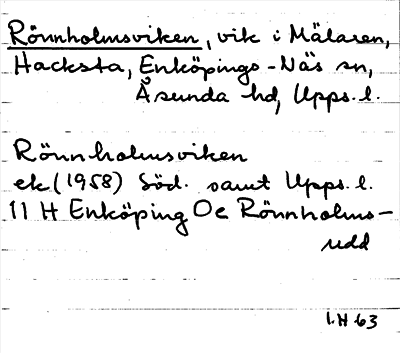 Rönnholmsviken, vik i Mälaren,
Hacksta, Enköpings-Näs sn,
Åsunda hd, Upps. l.
Rönnholmsviken
ek (1958) Söd. samt Upps. l.
11 H Enköping Oc Rönnholms-
udd
I.H 63